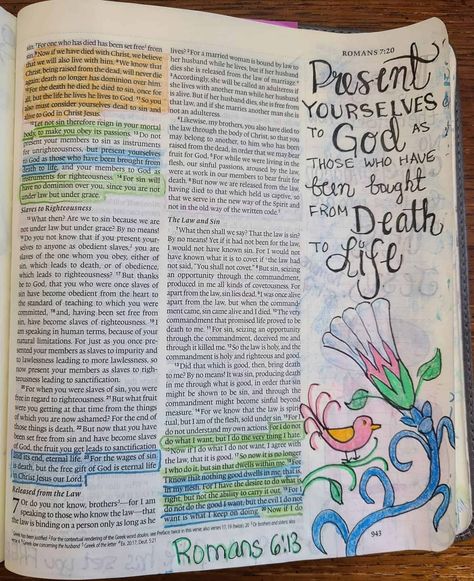 ROMANS 7:20
sin. ⁷For one who has died has been set free¹ from
sin. ⁸Now if we have died with Christ, we believe
that we will also live with him. ⁹We know that
Christ, being raised from the dead, will never die
again; death no longer has dominion over him.
¹⁰For the death he died he died to sin, once for
all, but the life he lives he lives to God. ¹¹So you
also must consider yourselves dead to sin and
alive to God in Christ Jesus.
¹²Let not sin therefore reign in your mortal
body, to make you obey its passions. ¹³Do not
present your members to sin as instruments
for unrighteousness, but present yourselves
to God as those who have been brought from
death to life, and your members to God as
instruments for righteousness. ¹⁴For sin will
have no dominion over you, since you are not
under law but under grace.
Slaves to Righteousness
¹⁵What then? Are we to sin because we are
not under law but under grace? By no means!
¹⁶Do you not know that if you present your-
selves to anyone as obedient slaves,² you are
slaves of the one whom you obey, either of
sin, which leads to death, or of obedience,
which leads to righteousness? ¹⁷But thanks
be to God, that you who were once slaves of
sin have become obedient from the heart to
the standard of teaching to which you were
committed, ¹⁸and, having been set free from
sin, have become slaves of righteousness. ¹⁹I
am speaking in human terms, because of your
natural limitations. For just as you once pre-
sented your members as slaves to impurity and
to lawlessness leading to more lawlessness, so
now present your members as slaves to righ-
teousness leading to sanctification.
²⁰For when you were slaves of sin, you were
free in regard to righteousness. ²¹But what fruit
were you getting at that time from the things
of which you are now ashamed? For the end of
those things is death. ²²But now that you have
been set free from sin and have become slaves
of God, the fruit you get leads to sanctification
and its end, eternal life. ²³For the wages of sin
is death, but the free gift of God is eternal life
in Christ Jesus our Lord.
Released from the Law
7 Or do you not know, brothers³—for I am
speaking to those who know the law—that
the law is binding on a person only as long as he
lives? ²For a married woman is bound by law to
her husband while he lives, but if her husband
dies she is released from the law of marriage.⁴
³Accordingly, she will be called an adulteress if
she lives with another man while her husband
is alive. But if her husband dies, she is free from
that law, and if she marries another man she is
not an adulteress.
⁴Likewise, my brothers, you also have died to
the law through the body of Christ, so that you
may belong to another, to him who has been
raised from the dead, in order that we may bear
fruit for God. ⁵For while we were living in the
flesh, our sinful passions, aroused by the law,
were at work in our members to bear fruit for
death. ⁶But now we are released from the law,
having died to that which held us captive, so
that we serve in the new way of the Spirit and
not in the old way of the written code.
The Law and Sin
⁷What then shall we say? That the law is sin?
By no means! Yet if it had not been for the law,
I would not have known sin. For I would not
have known what it is to covet if the law had
not said, "You shall not covet." ⁸But sin, seizing
an opportunity through the commandment,
produced in me all kinds of covetousness. For
apart from the law, sin lies dead. ⁹I was once alive
apart from the law, but when the command-
ment came, sin came alive and I died. ¹⁰The very
commandment that promised life proved to be
death to me. ¹¹For sin, seizing an opportunity
through the commandment, deceived me and
through it killed me. ¹²So the law is holy, and the
commandment is holy and righteous and good.
¹³Did that which is good, then, bring death
to me? By no means! It was sin, producing death
in me through what is good, in order that sin
might be shown to be sin, and through the
commandment might become sinful beyond
measure. ¹⁴For we know that the law is spiri-
tual, but I am of the flesh, sold under sin. ¹⁵For I
do not understand my own actions. For I do not
do what I want, but I do the very thing I hate.
¹⁶Now if I do what I do not want, I agree with
the law, that it is good. ¹⁷So now it is no longer
I who do it, but sin that dwells within me. ¹⁸For
I know that nothing good dwells in me, that is,
in my flesh. For I have the desire to do what is
right, but not the ability to carry it out. ¹⁹For I
do not do the good I want, but the evil I do not
want is what I keep on doing. ²⁰Now if I do
Present
YOURSELVES
TO God AS
THOSE WHO HAVE
been bought
FROM Death
TO Life
943
Romans 6:13